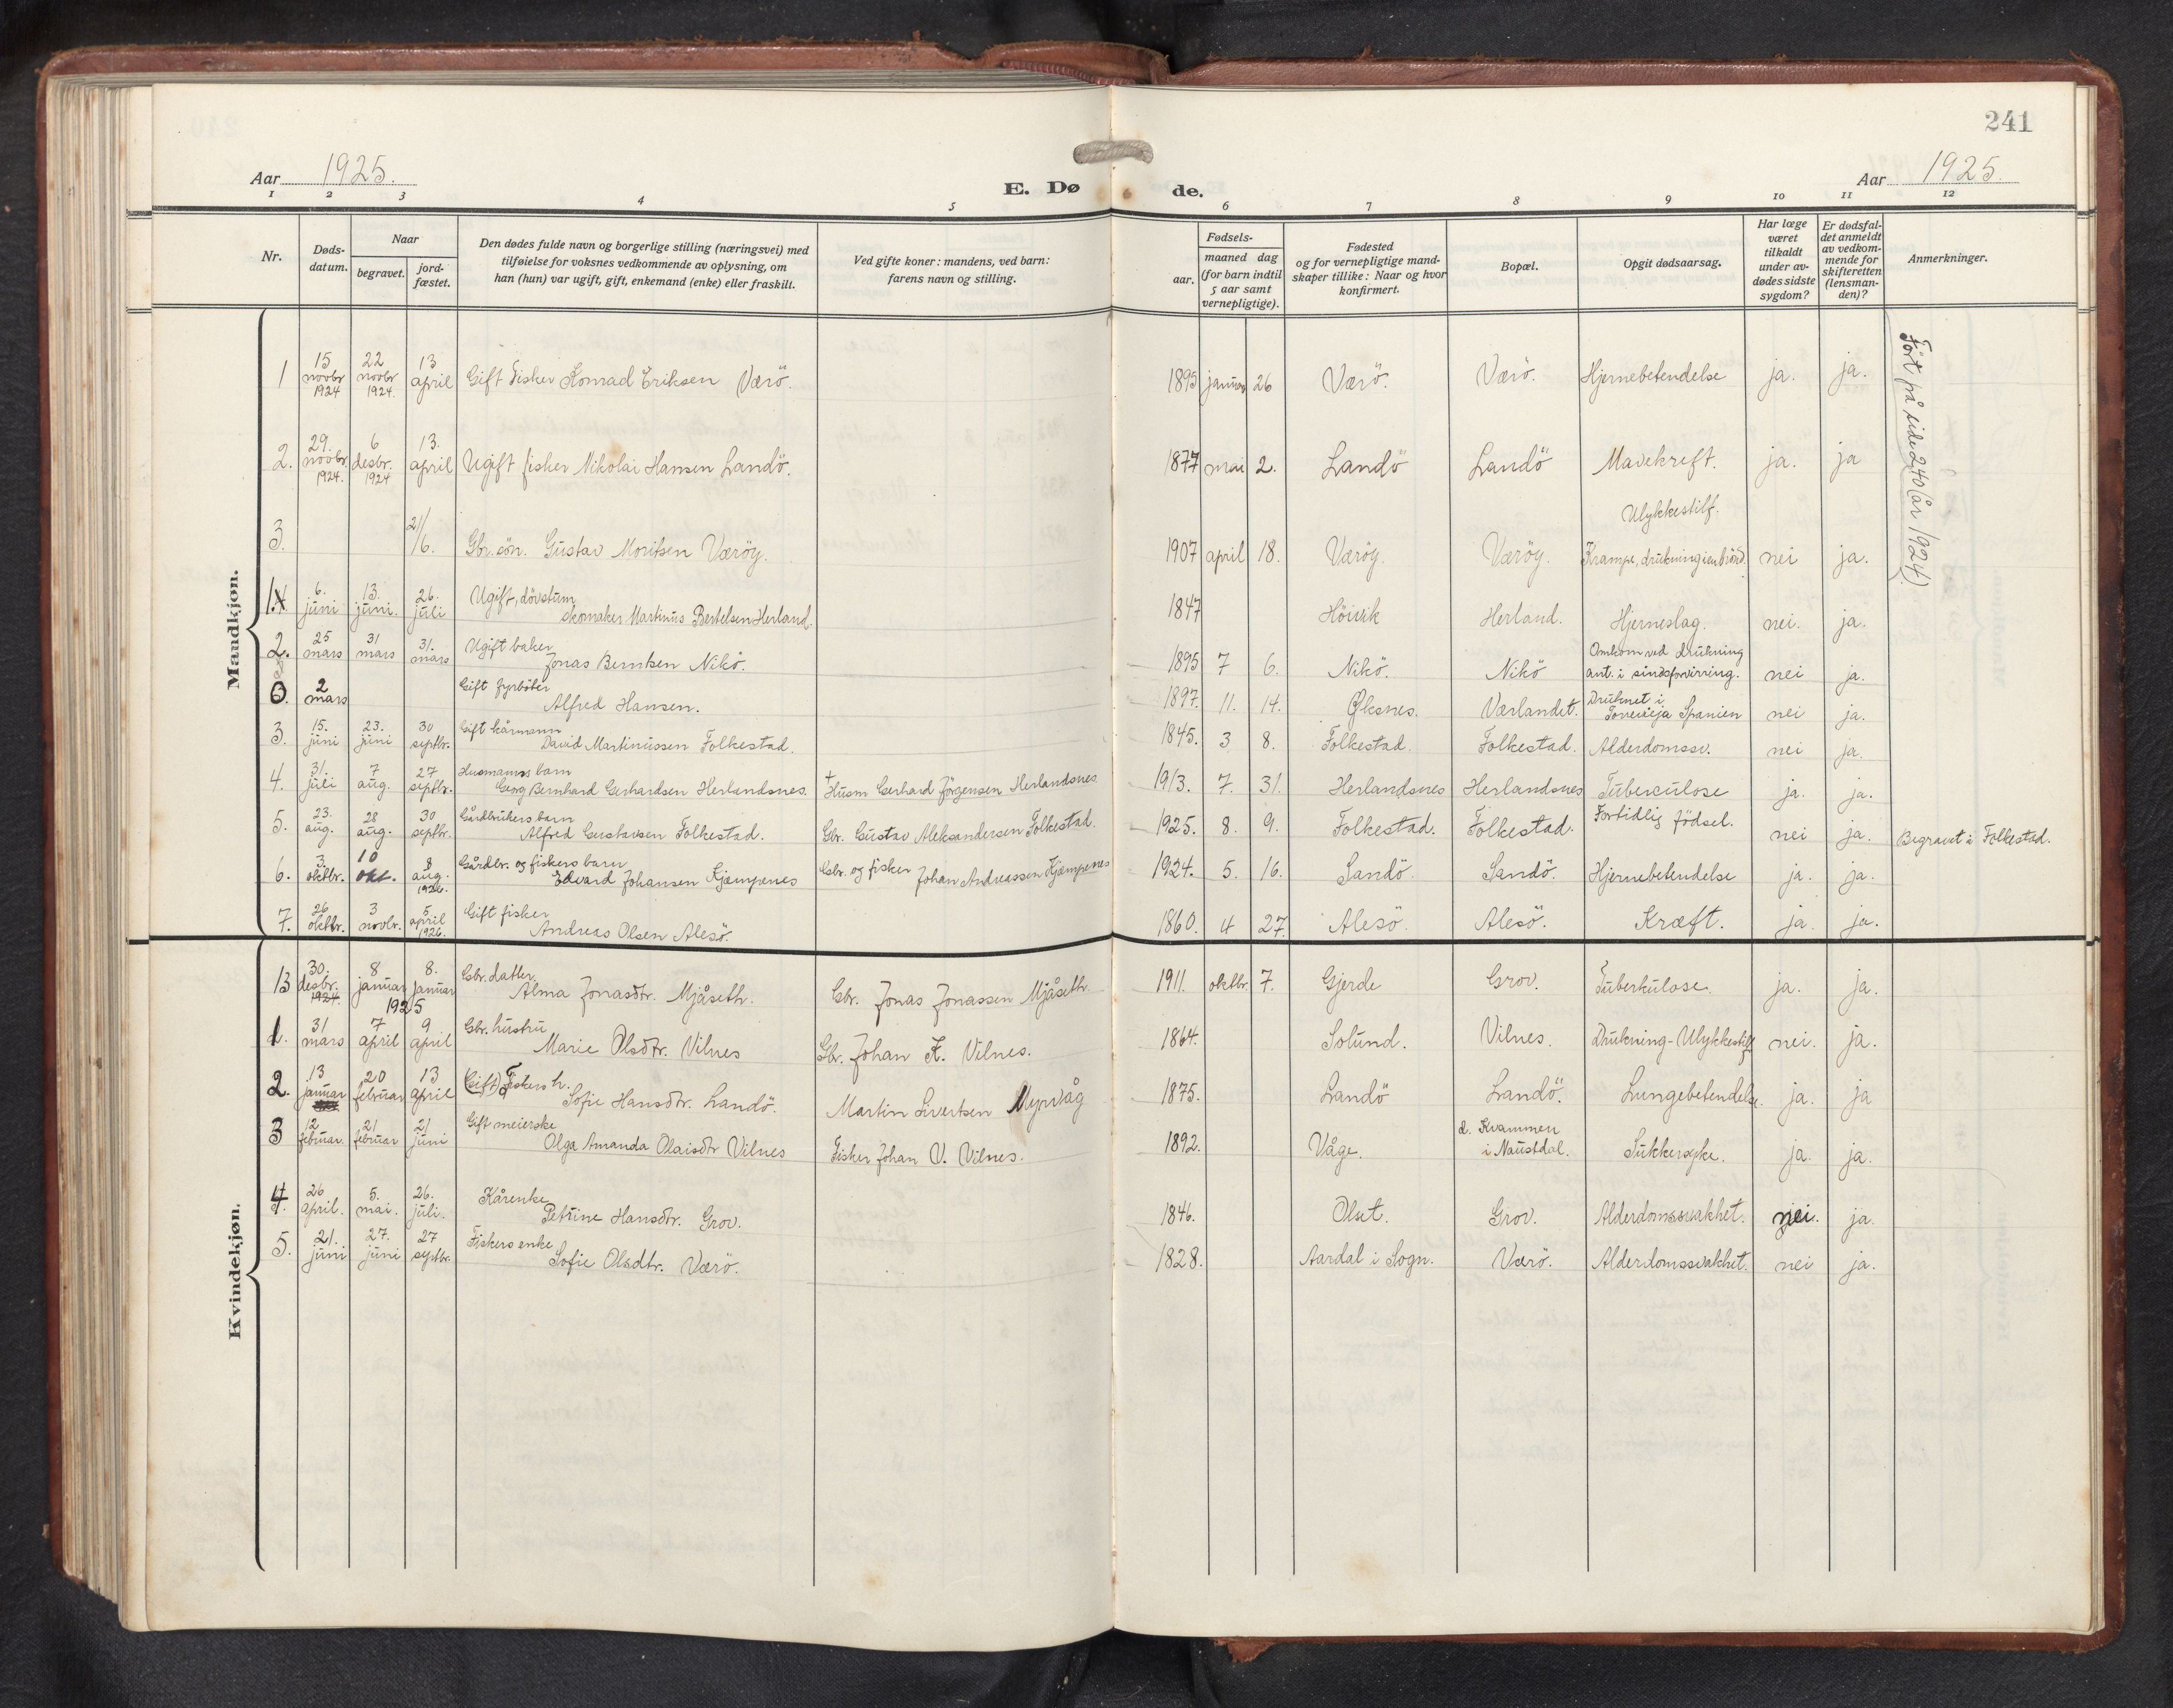 241
Aar 1925.
E. Dø de.
Aar 1925.
1 2 3 4 5 6 7 8 9 10 11 12
Nr.
Døds-
datum.
Naar
begravet.
jord-
fæstet.
Den dødes fulde navn og borgerlige stilling (næringsvei) med
tilføielse for voksnes vedkommende av oplysning, om
han (hun) var ugift, gift, enkemand (enke) eller fraskilt.
Ved gifte koner: mandens, ved barn:
farens navn og stilling.
Fødsels-
aar.
maaned dag
(for barn indtil
5 aar samt
vernepligtige).
Fødested
og for vernepligtige mand-
skaper tillike: Naar og hvor
konfirmert.
Bopæl.
Opgit dødsaarsag.
Har læge
været
tilkaldt
under av-
dødes sidste
sygdom?
Er dødsfal-
det anmeldt
av vedkom-
mende for
skifteretten
(lensman-
den)?
Anmerkninger.
Mandkjøn.
1 15 novbr 1924 22 novbr 1924. 13 april Gift Fisker Konrad Eriksen Værö. 1895 januar 26 Værö. Værö. Hjernebetendelse ja. ja.
Ført på side 240 (år 1924)
2. 29. novbr. 1924. 6 desbr. 1924 13. april Ugift fisker Nikolai Hansen Landö. 1877 mai 2. Landö Landö Mavekreft. ja. ja
Ulykkestilf.
3. 21/6. Gbr. sön. Gustav Moritsen Væröy. 1907 april 18. Væröy. Væröy. Krampe, drukning i en brönd. nei ja.
1. 6. juni 13. juni. 26. juli Ugift, dövstum
skomaker Martinus Bertelsen Herland. 1847 Höivik Herland. Hjerneslag. nei. ja.
2. 25 mars 31 mars 31. mars Ugift baker
Jonas Berntsen Nikö. 1895 7 6. Nikö. Nikö Omkom ved drukning
ant. i sindsforvirring. nei ja.
0. 2 mars Gift fyrböter
Alfred Hansen. 1897. 11. 14. Øksnes. Værlandet. Druknet i
Torrevieja Spanien nei ja.
3. 15. juni 23. juni 30 septbr. Gift kårmann
David Martinussen Folkestad. 1845. 3 8. Folkestad. Folkestad. Alderdomssv. nei ja.
4. 31. juli 7 aug. 27 septbr. Husmanns barn
Georg Bernhard Gerhardsen Herlandsnes. † Husm Gerhard Jörgensen Herlandsnes. 1913. 7. 31. Herlandsnes Herlandsnes Tuberkulose ja. ja.
5. 23. aug. 28 aug. 30 septbr. Gårdbrukers barn
Alfred Gustavsen Folkestad. Gbr. Gustav Aleksandersen Folkestad. 1925. 8. 9. Folkestad. Folkestad. Fortidlig födsel. nei ja. Begravet i Folkestad.
6. 3. oktbr. 10 okt. 8 aug. 1926. Gårdbr. og fiskers barn
Edvard Johansen Kjempenes Gbr. og fisker Johan Andreassen Kjempenes 1924. 5. 16. Sandö. Sandö. Hjernebetendelse ja. ja.
7. 26 oktbr. 3 novbr. 5 april 1926. Gift fisker
Andreas Olsen Alesö. 1860. 4 27. Alesö. Alesö. Kræft. ja. ja.
Kvindekjøn.
13 30. desbr. 1924. 8 januar 8. januar 1925 Gbr. datter
Alma Jonasdtr. Mjåseth. Gbr. Jonas Jonassen Mjåseth 1911. oktbr. 7. Gjerde Grov. Tuberkulose. ja. ja.
1. 31 mars 7 april 9 april Gbr. hustru
Marie Olsdtr. Vilnes Gbr. Johan K. Vilnes. 1864. Solund. Vilnes. Drukning - Ulykkestilf nei. ja.
2. 13 januar 20 februar 13 april (Gift) Fiskers h.
Sofie Hansdtr. Landö. Martin Sivertsen Myrvåg 1875. Landö Landö. Lungebetendelse. ja. ja
3 12 februar. 21 februar 21 juni Gift meierske
Olga Amanda Olaisdtr Vilnes Fisker Johan V. Vilnes. 1892. Våge. d. Kvammen
i Naustdal. Sukkersyke. ja. ja.
4. 26 april. 5. mai. 26. juli. Kårenke
Petrine Hansdtr. Grov. 1846. Olset. Grov. Alderdomssvakhet. nei. ja.
5. 21. juni 27. juni 27 septbr. Fiskers enke
Sofie Olsdtr. Værö. 1828. Aardal i Sogn. Værö. Alderdomssvakhet. nei ja.